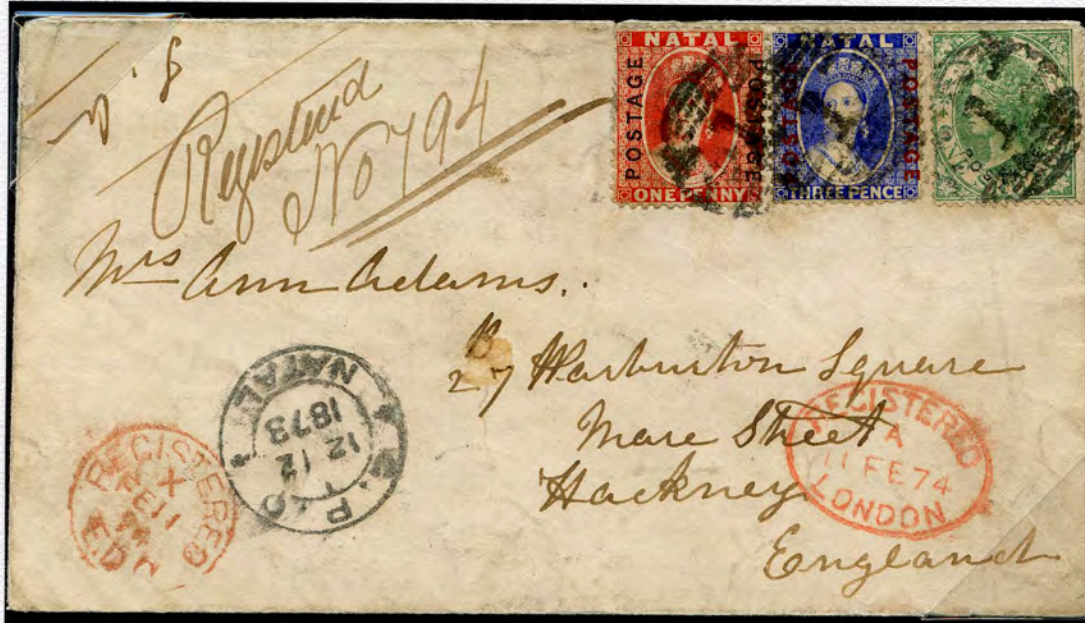 Registered
No 794
NATAL
POSTAGE
POSTAGE
ONE PENNY
NATAL
POSTAGE
POSTAGE
THREE PENCE
Mrs Ann Adams.
27 Warburton Square
Mare Street
Hackney
England
G.P.O.
NATAL
12 12
1873
REGISTERED
X
FE 11
74
E.D
REGISTERED
A
11 FE 74
LONDON